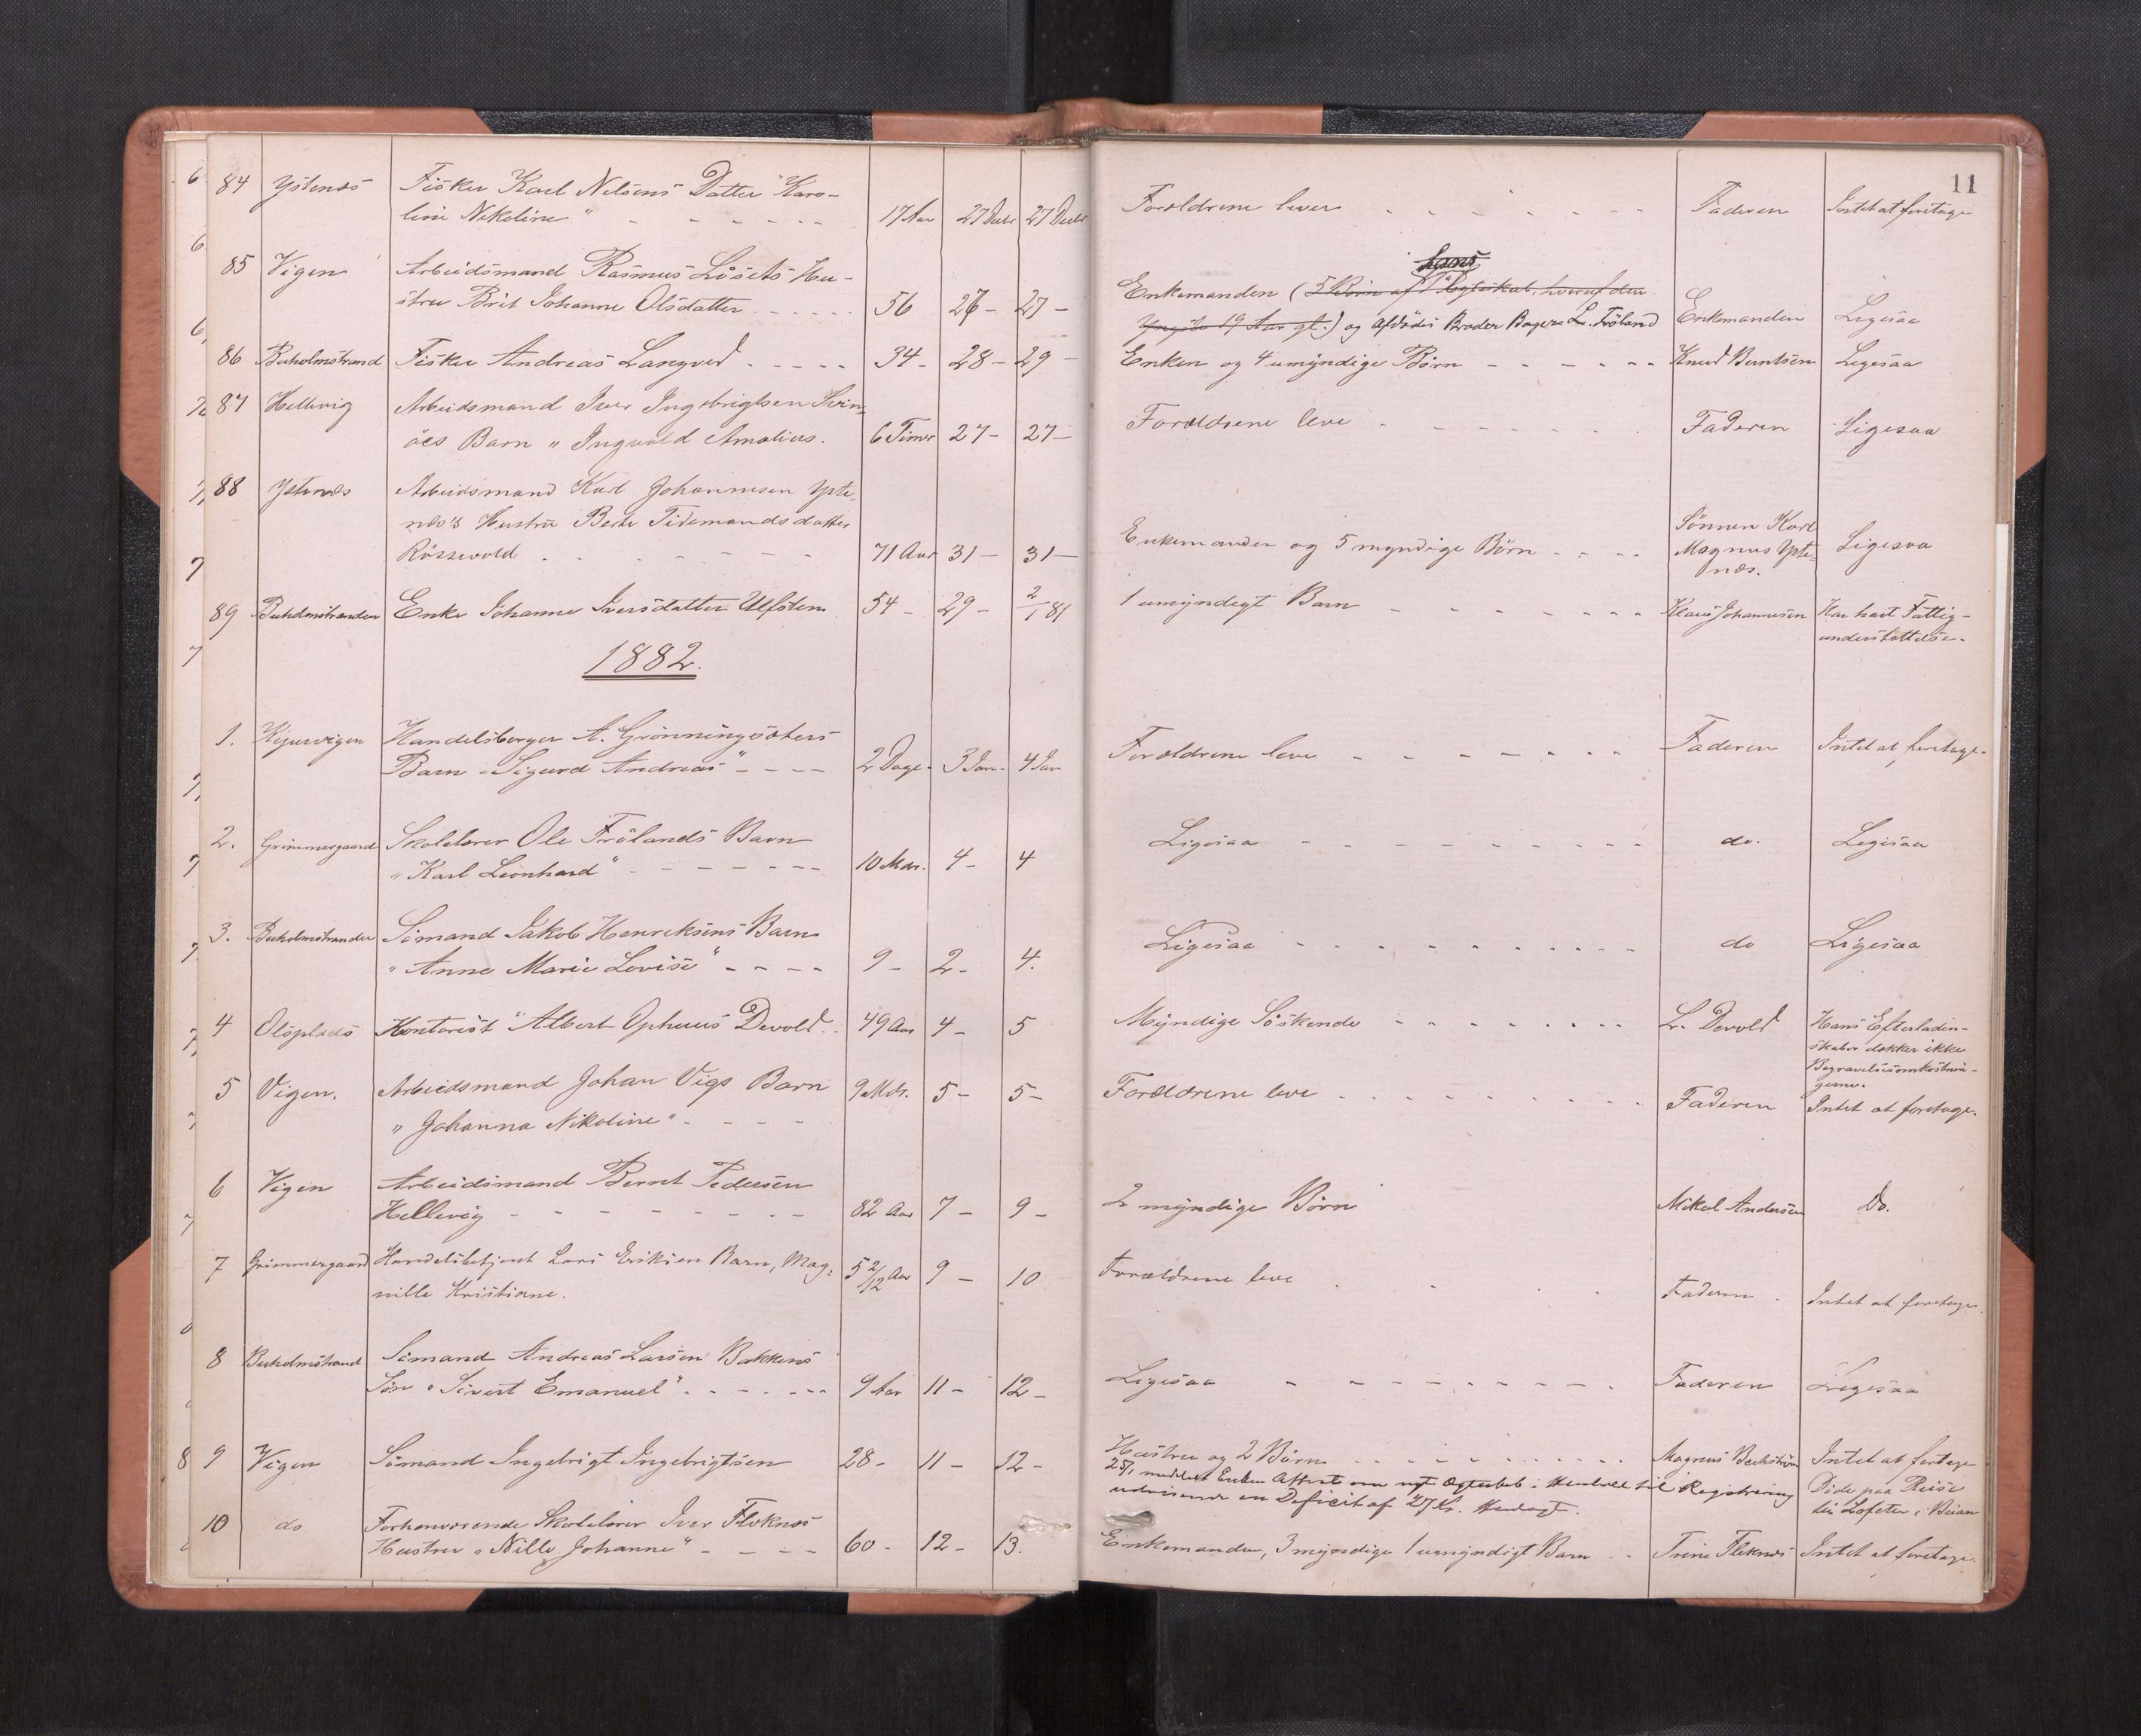 11
84 Ystenæs Fisker Karl Nilsens Datter "Karo-
line Nikoline" 17 Aar 27 Decbr 27 Decbr Forældrene lever Faderen Intet at foretage
85 Vigen Arbeidsmand Rasmus Løsets Hu-
stru Brit Johanne Olsdatter 56 26 - 27 - Enkemanden (5 Børn af Ægteskab, hvoraf den
yngste 19 Aar gl.) og Afdødes Broder Bager L. Frøland Enkemanden Ligesaa
86 Buholmstrand Fisker Andreas Langved 34 - 28 - 29 - Enken og 4 umyndige Børn Knud Berntsen Ligesaa
87 Hellevig Arbeidsmand Iver Ingebrigtsen Svin-
øes Barn "Ingvald Amalius. 6 Timer 27 - 27 - Forældrene leve Faderen Ligesaa
88 Ystenæs Arbeidsmand Karl Johannesen Yste-
næs's Hustru Berte Tidemandsdatter
Røszevold 71 Aar 31 - 31 - Enkemanden og 5 myndige Børn Sønnen Karl
Magnus Yste-
næs. Ligesaa
89 Buholmstranden Enke Johanne Iversdatter Ulfsten 54 - 29 - 2/1 81 1 umyndigt Barn Klaus Johannesen Har havt Fattig-
understøttelse.
1882.
1. Kipervigen Handelsborger A. Grønningsæters
Barn "Sigurd Andreas" 2 Dage - 3 Jan. 4 Jan Forældrene leve Faderen Intet at foretage.
2. Grimmergaard Skolelærer Ole Frølands Barn
"Karl Leonhard" 10 Mdr. 4 - 4 Ligesaa do. Ligesaa
3. Buholmstranden Sømand Jakob Henriksens Barn
"Anne Marie Lovise" 9 - 2 - 4. Ligesaa do Ligesaa
4 Olsplads Kontorist "Albert Ophuus Devold 49 Aar 4 - 5 Myndige Søskende L. Devold Hans Efterladen-
skaber dækker ikke
Begravelsesomkostnin-
gerne.
5 Vigen. Arbeidsmand Johan Vigs Barn
"Johanna Nikoline" 9 Mdr. 5 - 5 - Forældrene leve Faderen Intet at foretage.
6 Vigen Arbeidsmand Bernt Pedersen
Hellevig 82 Aar 7 - 9 - 2 myndige Børn Mikal Andersen Do.
7 Grimmergaard Handelsbetjent Lars Eriksen Barn, Mag-
nille Kristiane. 5 2/12 Aar 9 - 10 Forældrene leve Faderen Intet at foretage.
8 Buholmstrand Sømand Andreas Larsen Bakkens
Søn "Sivert Emanuel" 9 Aar 11 - 12 - Ligesaa Faderen Ligesaa
9 Vigen Sømand Ingebrigt Ingebrigtsen 28 - 11 - 12 - Hustru og 2 Børn Magnus Buchstrøm Intet at foretage
25/1 meddelt Enken Attest om nyt Ægteskab i Henhold til Registrering
udvisende en Deficit af 27 Kr. Henlagt. Døde paa Reise
til Lofoten i Beian
10 do Forhenværende Skolelærer Iver Fleknæs
Hustru "Nille Johanne" 60 - 12 - 13. Enkemanden, 3 myndige 1 umyndigt Barn Trine Fleknæs Intet at foretage.